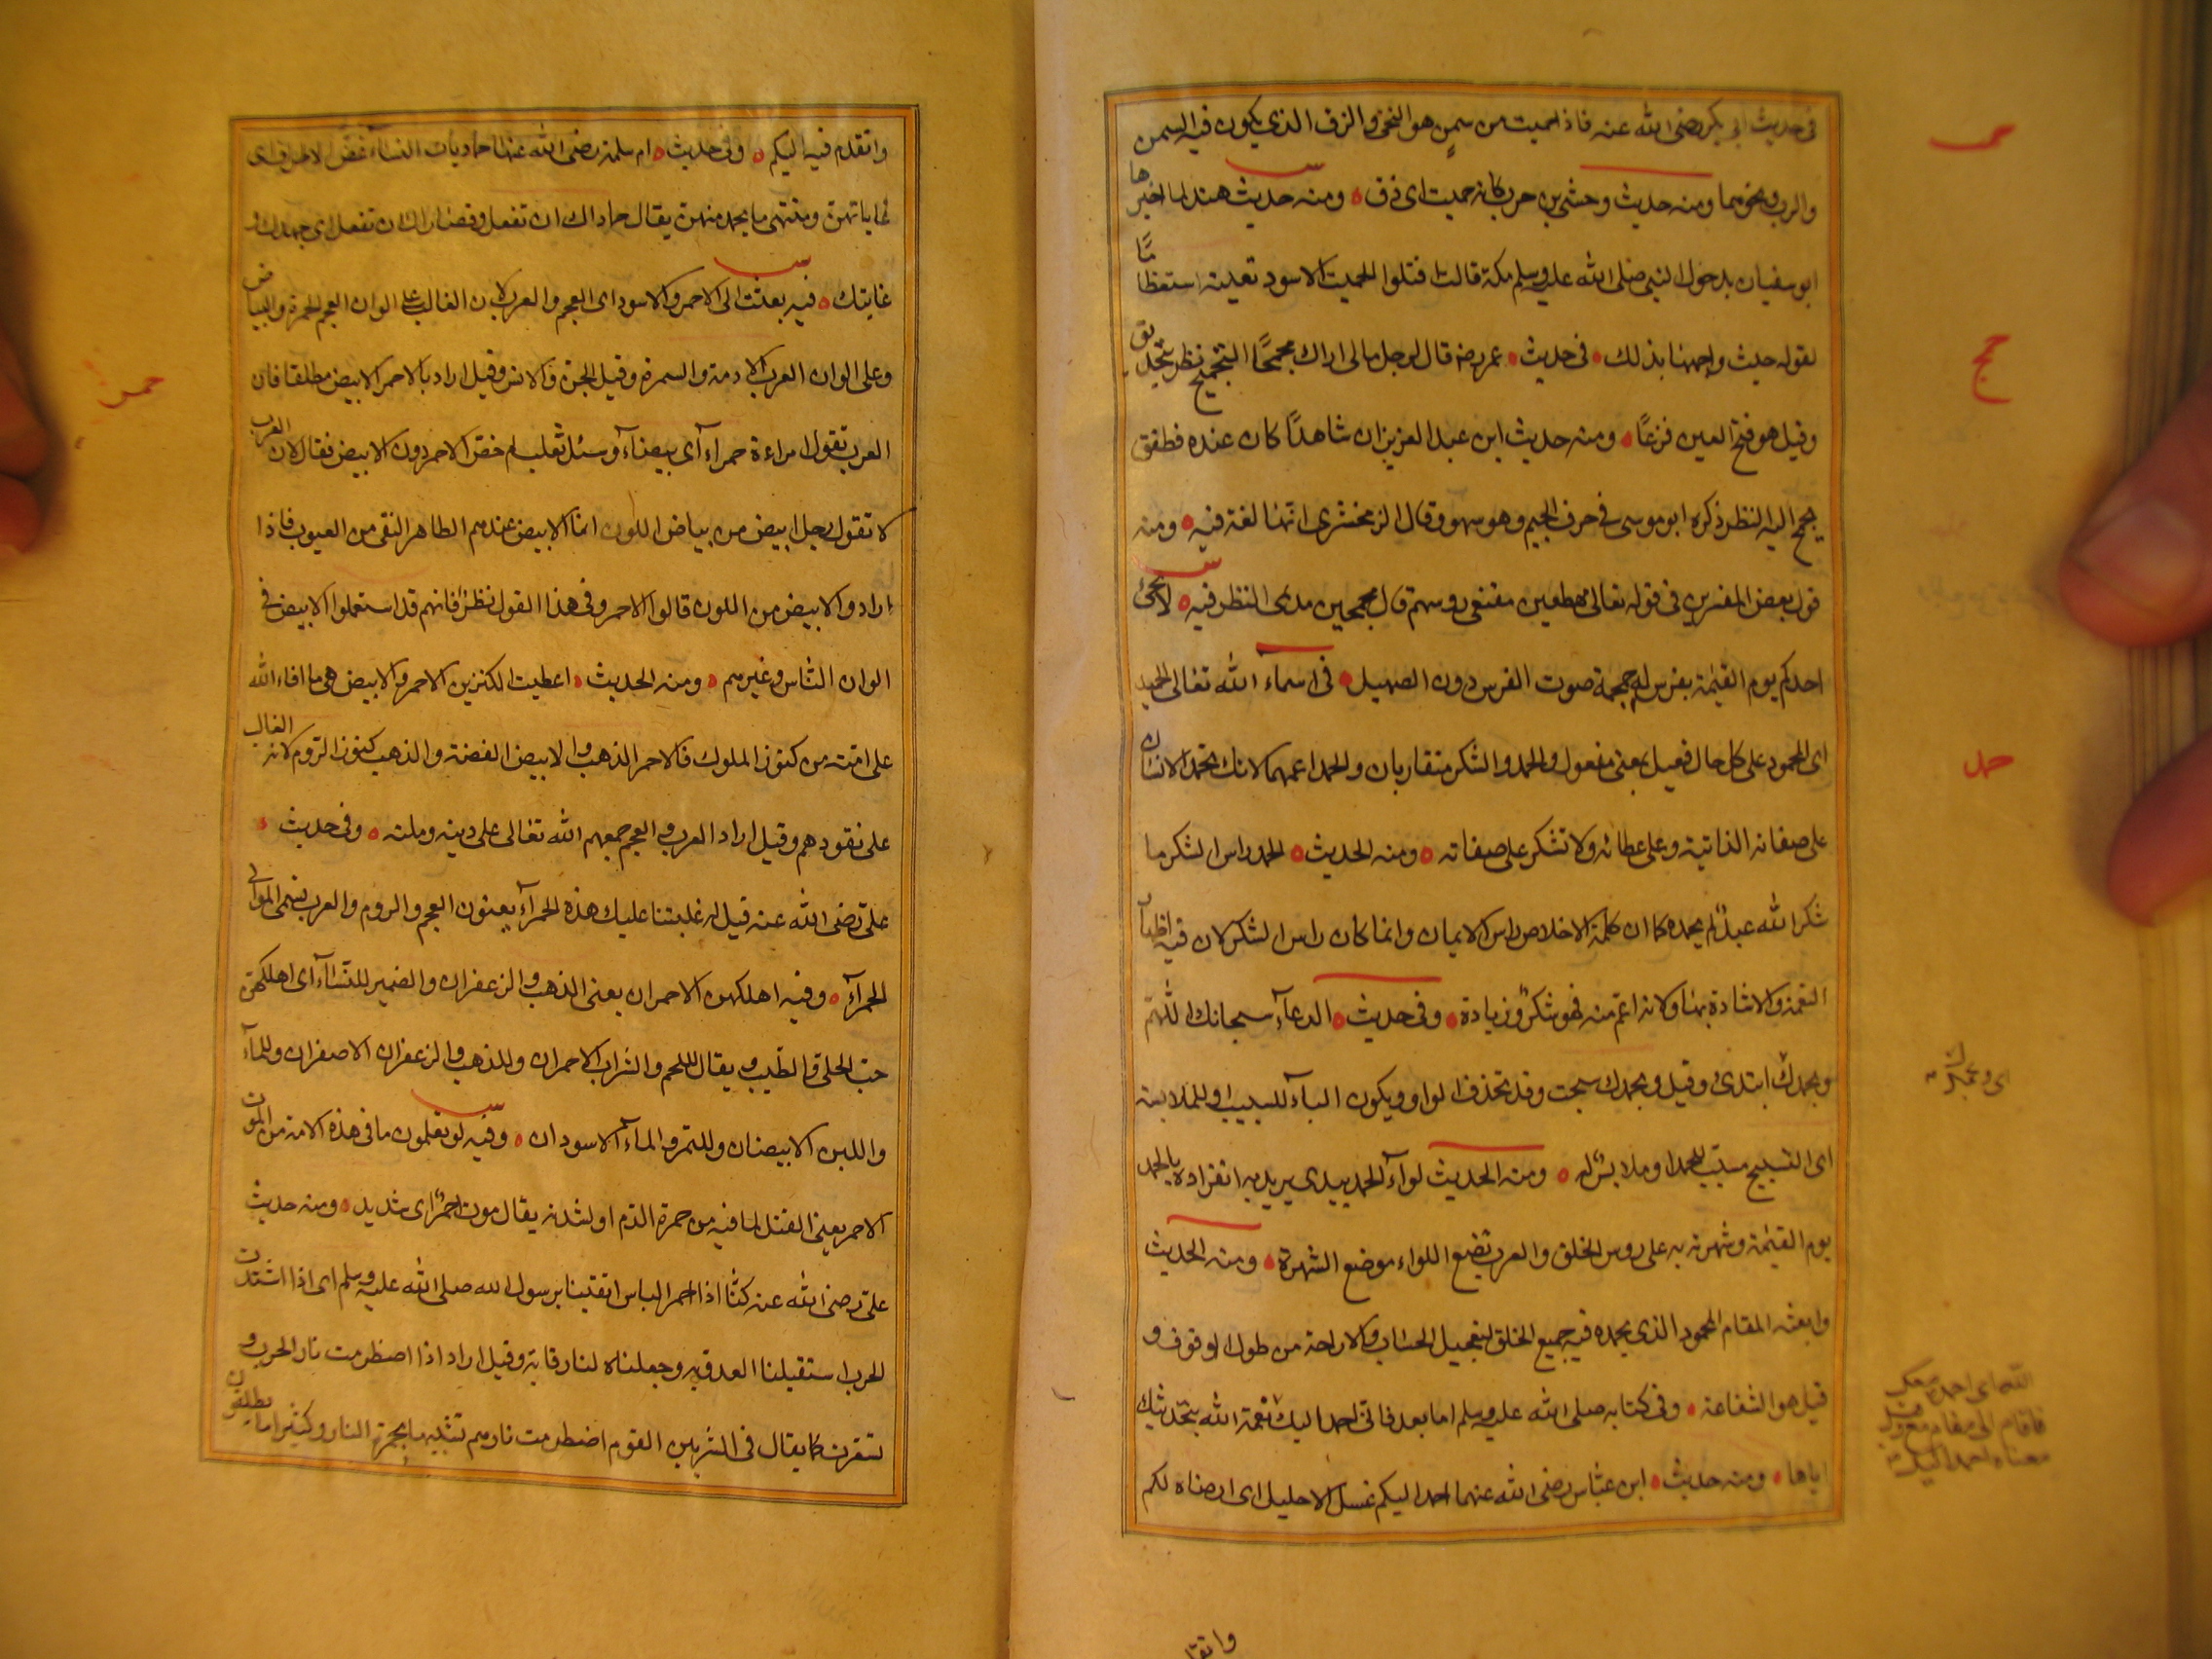 في حديث ابي بكر رضي الله عنه فاذا حميت من سمن هو النحي والزق الذي يكون فيه السمن
والرب ونحوهما ومنه حديث وحشي بن حرب كانه حميت اي زق ومنه حديث هند لما اخبرها
ابو سفيان بدخول النبي صلى الله عليه وسلم مكة قالت اقتلوا الحميت الاسود تعنيه استعظاما
لقوله حيث واجهها بذلك في حديث عمر رضه قال لرجل مالي اراك محمجا التحميج نظر بتحديق
وقيل هو فتح العين فزعا ومنه حديث ابن عبد العزيز ان شاهدا كان عنده فطفق
يحمج اليه النظر ذكره ابو موسى في حرف الجيم وهو سهو وقال الزمخشري انها لغة فيه ومنه
قول بعض المفسرين في قوله تعالى مهطعين مقنعي روسهم قال محمجين مدى النظر فيه لا يجئ
احدكم يوم القيمة بفرس له حمحمة صوت الفرس دون الصهيل في اسماء الله تعالى الحميد
اي المحمود على كل حال فعيل بمعنى مفعول والحمد والشكر متقاربان والحمد اعمهما لانك تحمد الانسان
على صفاته الذاتية وعلى عطائه ولا تشكر على صفاته ومنه الحديث الحمد راس الشكر ما
شكر الله عبد لم يحمده كما ان كلمة الاخلاص راس الايمان وانما كان راس الشكر لان فيه اظهار
النعمة والاشادة بها ولانه اعم منه فهو شكر وزيادة وفي حديث الدعاء سبحانك اللهم
وبحمدك ابتدئ وقيل وبحمدك سبحت وقد تحذف الواو ويكون الباء للسبب او للملابسة
اي التسبيح مسبب للحمد او ملابس له ومنه الحديث لواء الحمد بيدي يريد به انفراده بالحمد
يوم القيمة وشهرته به على روس الخلق والعرب تضع اللواء موضع الشهرة ومنه الحديث
وابعثه المقام المحمود الذي يحمده فيه جميع الخلق لتعجيل الحساب والاراحة من طول الوقوف و
قيل هو الشفاعة وفي كتابه صلى الله عليه وسلم اما بعد فاني احمد اليك نعمة الله بتحديثك
اياها ومنه حديث ابن عباس رضي الله عنهما احمد اليكم غسل الاحليل اي ارضاه لكم
حمت
حمج
حمد
واتقدم فيه اليكم وفي حديث ام سلمة رضي الله عنها حماديات النساء غض الاطراف اي
غاياتهن ومنتهى ما يحمد منهن يقال حماداك ان تفعل وقصاراك ان تفعل اي جهدك و
غايتك فيه بعثت الى الاحمر والاسود اي العجم والعرب لان الغالب على الوان العجم الحمرة والبياض
وعلى الوان العرب الادمة والسمرة وقيل الجن والانس وقيل اراد بالاحمر الابيض مطلقا فان
العرب تقول امراءة حمراء اي بيضاء وسئل ثعلب لم خص الاحمر دون الابيض فقال لان العرب
لا تقول رجل ابيض من بياض اللون انما الابيض عندهم الطاهر النقي من العيوب فاذا
ارادوا الابيض من اللون قالوا الاحمر وفي هذا القول نظر فانهم قد استعملوا الابيض في
الوان الناس وغيرهم ومنه الحديث اعطيت الكنزين الاحمر والابيض هي ما افاء الله
على امته من كنوز الملوك فالاحمر الذهب والابيض الفضة والذهب كنوز الروم لانه الغالب
على نقودهم وقيل اراد العرب والعجم جمعهم الله تعالى على دينه وملته وفي حديث
علي رضي الله عنه قيل له غلبتنا عليك هذه الحمراء يعنون العجم والروم والعرب تسمى الموالي
الحمراء وفيه اهلكهن الاحمران يعني الذهب والزعفران والضمير للنساء اي اهلكهن
حب الحلي والطيب ويقال للحم والشراب الاحمران وللذهب والزعفران الاصفران وللماء
واللبن الابيضان وللتمر والماء الاسودان وفيه لو تعلمون ما في هذه الامة من الموت
الاحمر يعني القتل لما فيه من حمرة الدم او لشدته يقال موت احمر اي شديد ومنه حديث
علي رضي الله عنه كنا اذا احمر الباس اتقينا برسول الله صلى الله عليه وسلم اي اذا اشتدت
الحرب استقبلنا العدو به وجعلناه لنا وقاية وقيل اراد اذا اضطرمت نار الحرب و
تسعرت كما يقال في الشر بين القوم اضطرمت نارهم تشبيه بالحمرة النار وكثيرا ما يطلقون
حمر